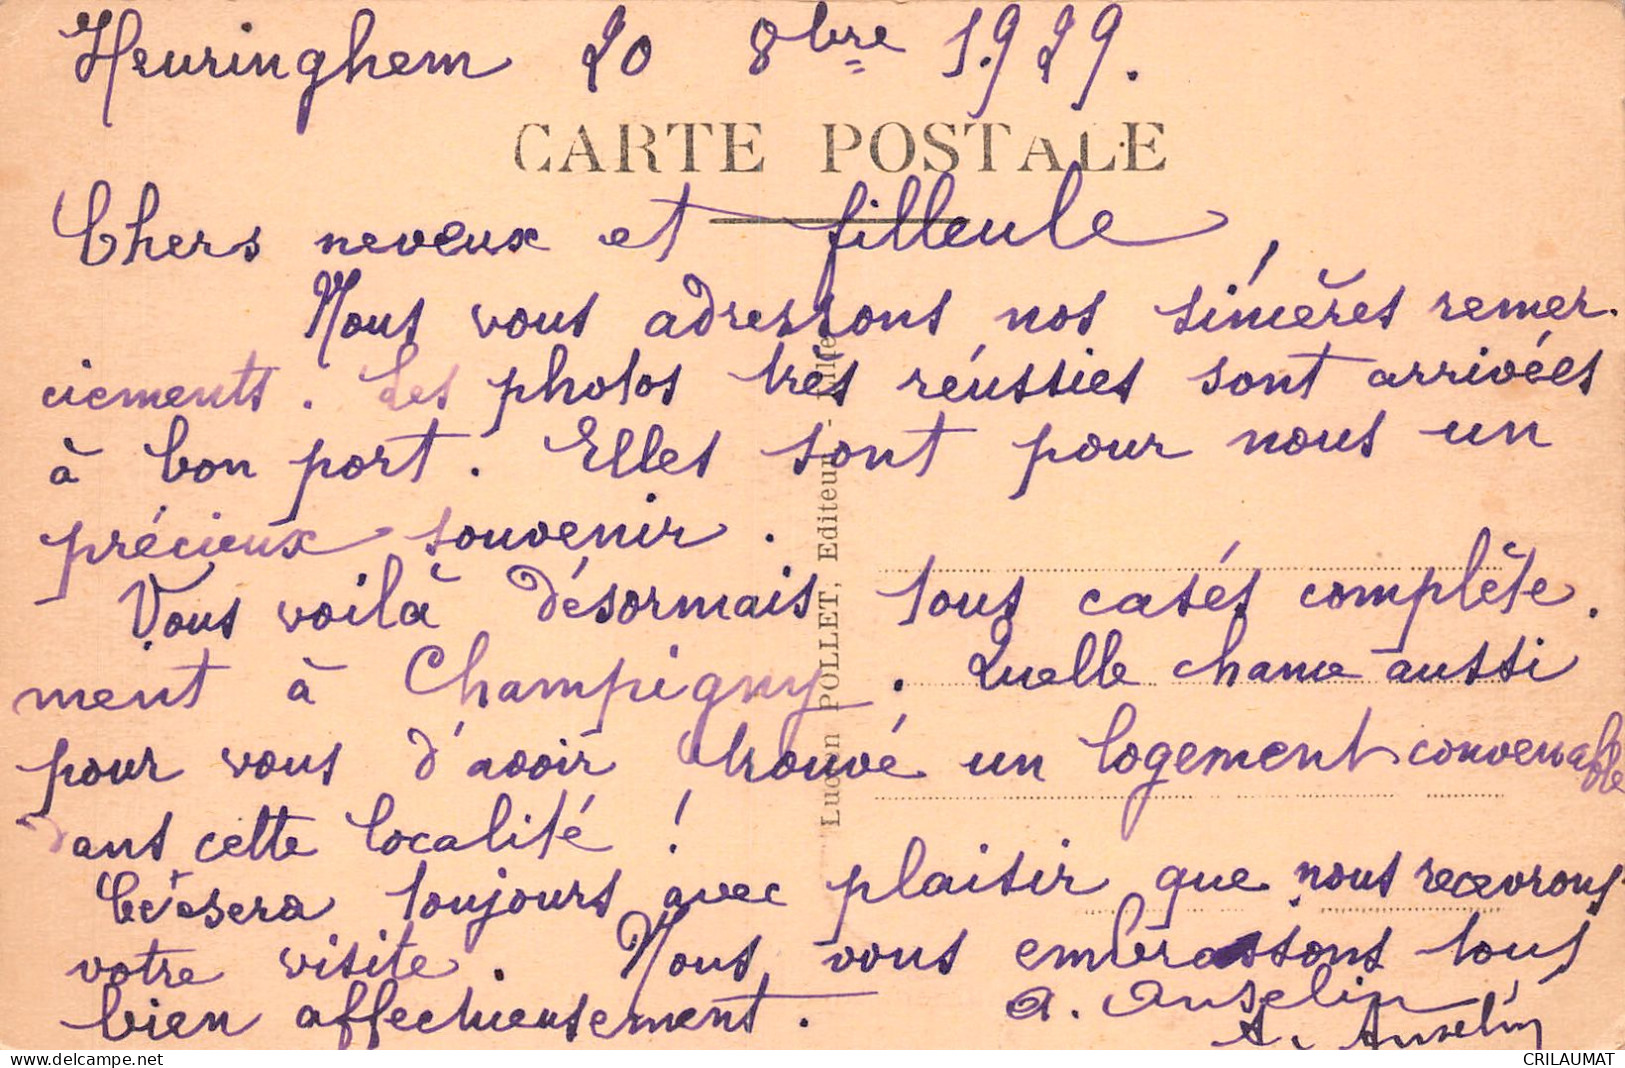 Heuringhem 20 8bre 1929.
CARTE POSTALE
Chers neveux et filleule,
Nous vous adressons nos sincères remer-
ciements. Les photos très réussies sont arrivées
à bon port. Elles sont pour nous un
précieux souvenir.
Vous voilà désormais tous casés complète.
ment à Champigny. Quelle chance aussi
pour vous d'avoir trouvé un logement convenable
dans cette localité !
Ce sera toujours avec plaisir que nous recevrons
votre visite. Nous vous embrassons tous
bien affectueusement. A. Anselin
A. Anselin
Lucien POLLET, Editeur - Lille
www.delcampe.net
CRILAUMAT